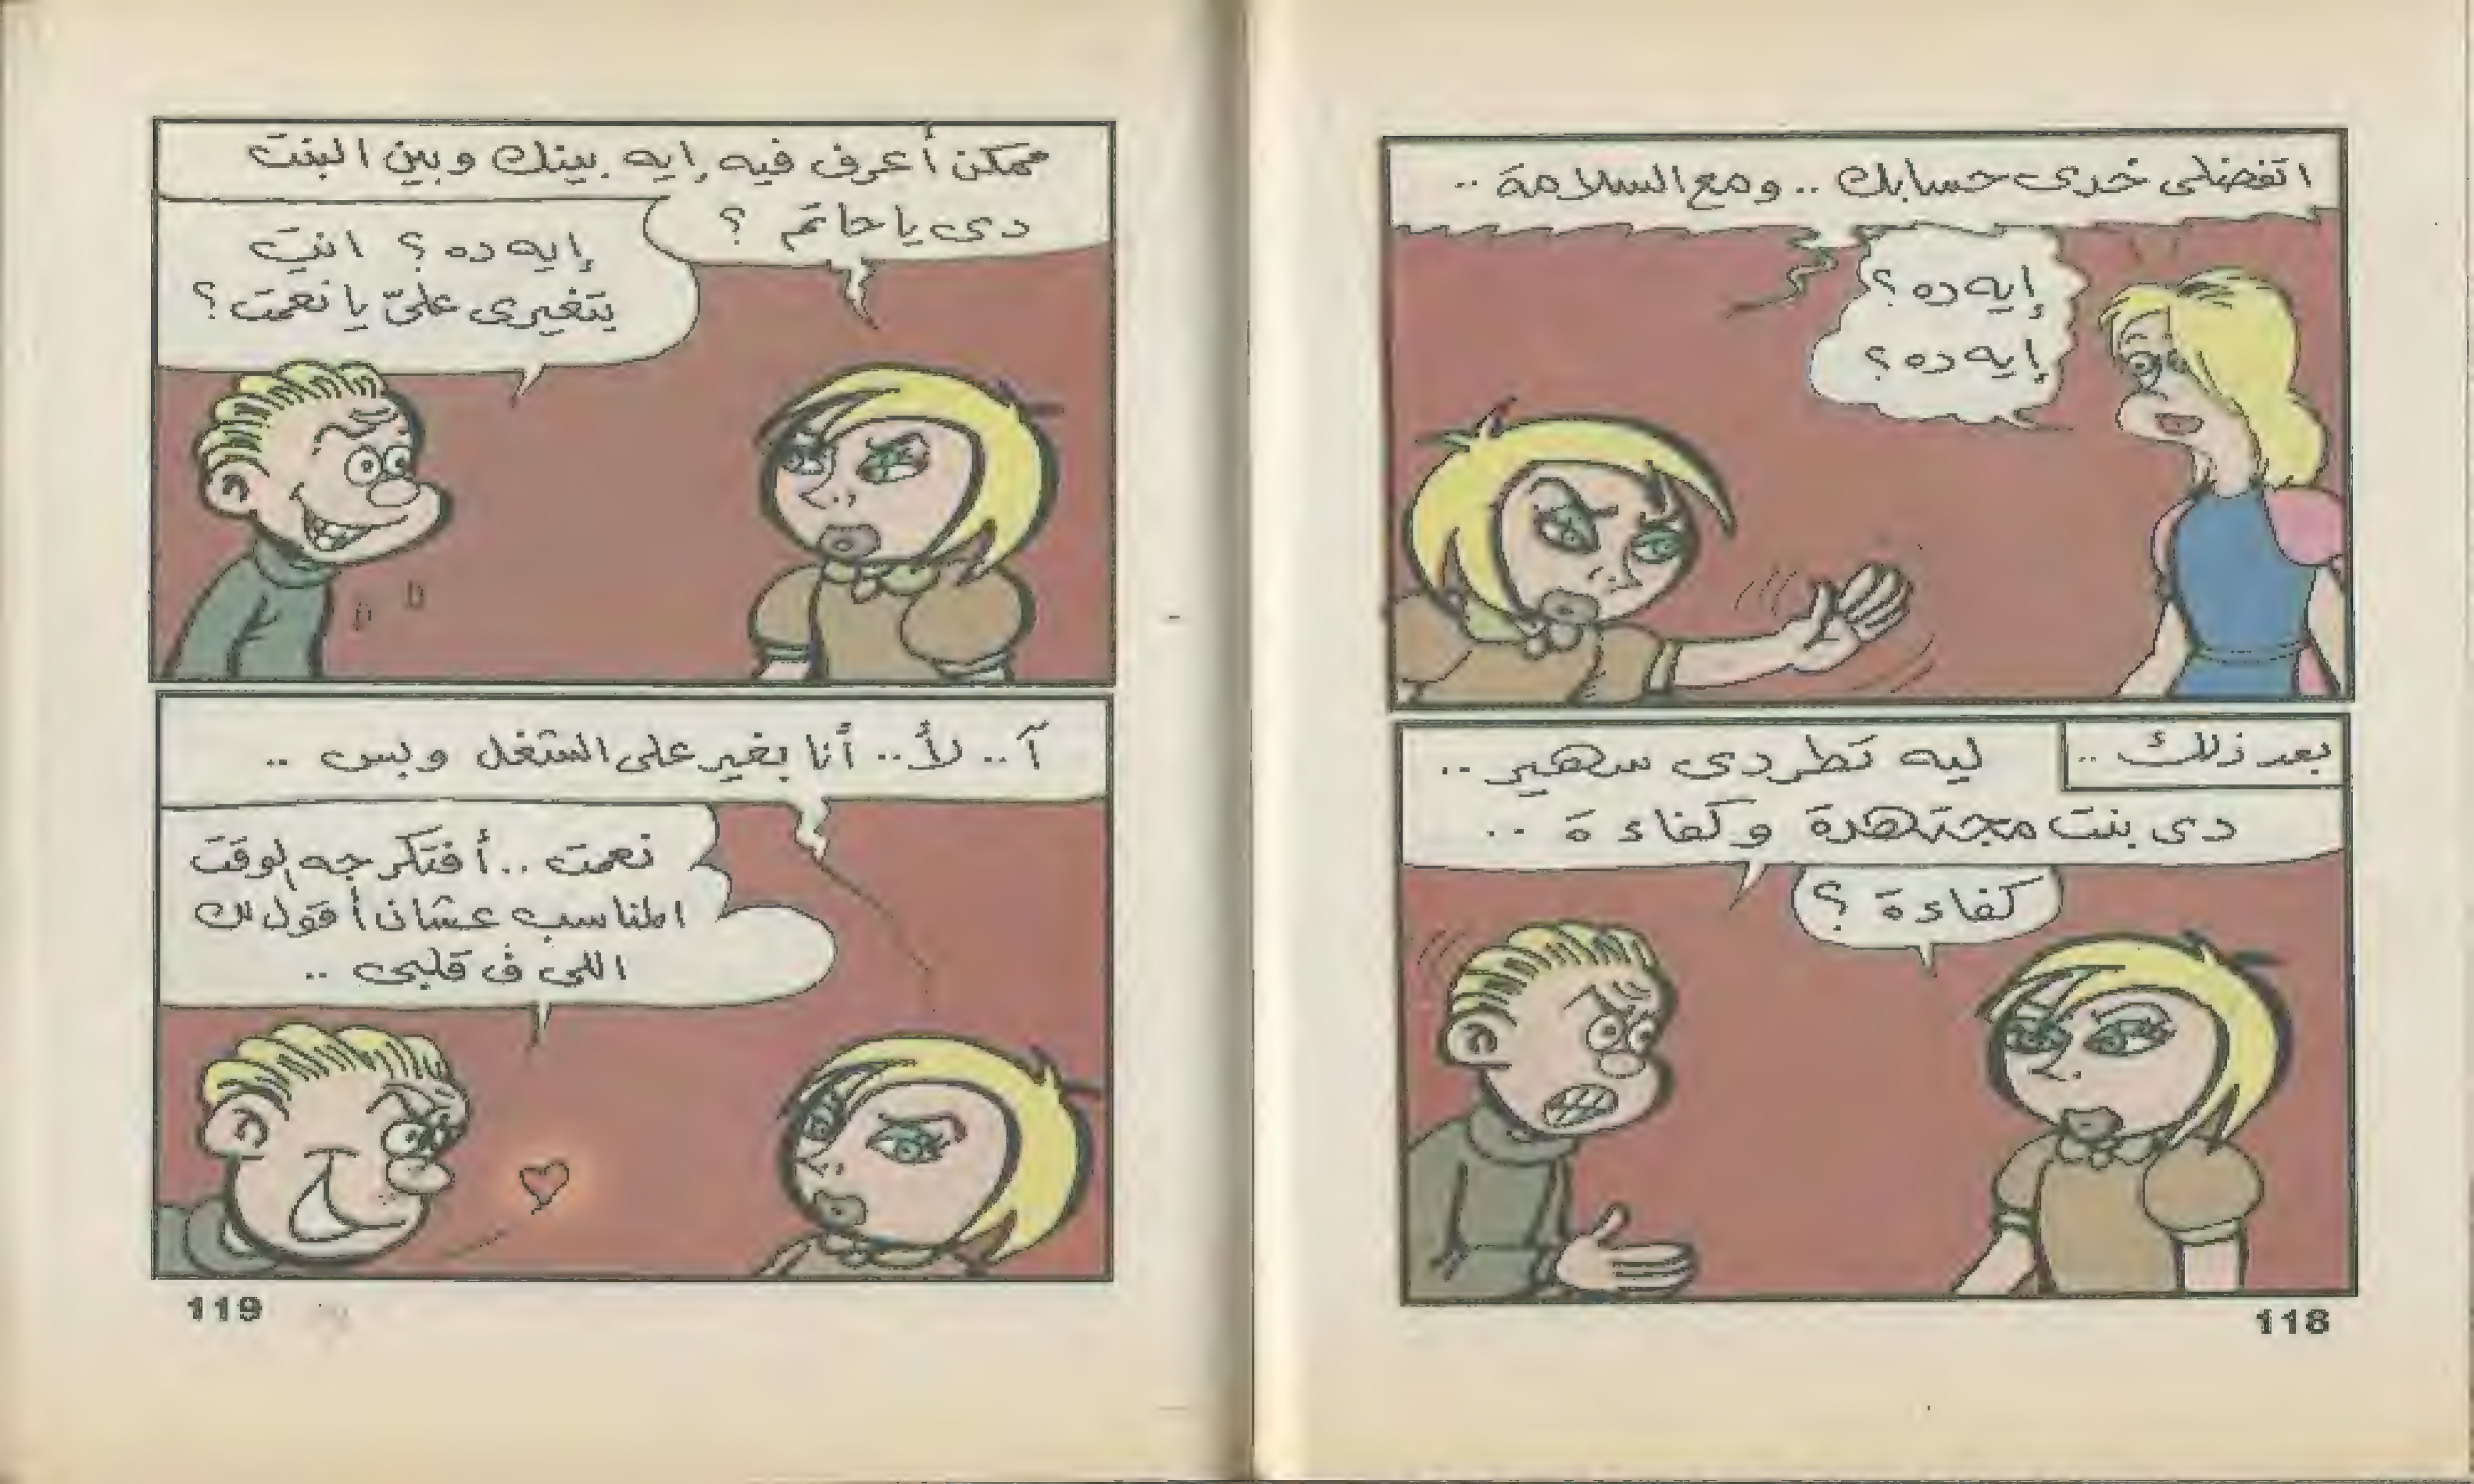 اتفضلى خدى حسابك .. ومع السلامة ..
إيه ده ؟
إيه ده ؟
بعد ذلك ..
ليه تطردى سهير ..
دى بنت مجتهدة وكفاءة ..
كفاءة ؟
118
ممكن أعرف فيه إيه بينك وبين البنت
دى يا حاتم ؟
إيه ده ؟ انتِ
بتغيرى علىّ يا نعمت ؟
آ .. لأ .. أنا بغير على الشغل وبس ..
نعمت .. أفتكر جه الوقت
المناسب عشان أقول لك
اللى ف قلبى ..
119